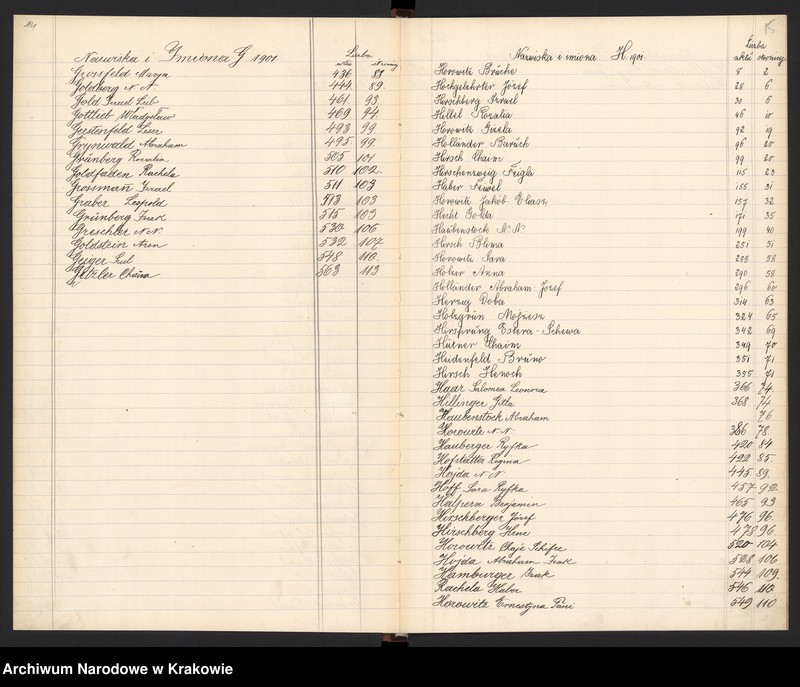 Nazwiska i Imiona G 1901.
Liczba
aktu strony
Grossfeld Marya 436 87
Goldberg N. N. 444 89.
Gold Izrael Leib 461 93
Gottlieb Władysław 469 94
Gerstenfeld Leser 493 99
Grynwald Abraham 495. 99.
Grünberg Rozalia 505 101
Goldfaden Rachela 510 102.
Grossman Izrael 511 103
Graber Leopold 513 103
Grünberg Izak 515 103
Greschler N.N. 530 106
Goldstein Aron 532 107
Geiger Saul 548 110.
Getzler Chana 563 113
Nazwiska i imiona H. 1901.
Liczba
aktu strony
Horowitz Brücha 8 2
Hochgelehrter Józef 28 6
Hirschberg Izrael 30 6
Hillel Rozalia 46 10
Horowitz Gizela 92 19
Holländer Baruch 96 20
Hirsch Chaim 99 20
Hirschenzweig Feigla 115 23
Haber Feiwel 155 31
Horowitz Jakób-Eliasz 157 32
Hecht Golda 171 35
Haubenstock N. N. 199 40
Hirsch Blima 251 51
Horowitz Sara 288 58
Holzer Anna 290 58
Holländer Abraham-Józef 296 60
Herzug Doba 314 63
Holzgrün Mojżesz 324 65
Hirsprung Estera-Schewa 342 69
Hütner Chaim 349 70
Heidenfeld Bruno 351 71
Hirsch Henoch 355 71
Haar Salomea Leonora 366 74.
Hillinger Gitla 368 74
Haubenstock Abraham 76
Horowitz N.N. 386 78.
Hauberger Ryfka 420 84
Hofstätter Regina 422 85.
Hojda N. N. 445 89.
Hoff Sara Ryfka 457 92.
Halpern Benjamin 465 93
Hirschberger Józef 476 96.
Hirschberg Hene 478 96.
Horowitz Chaje Schifre 520 104
Hojda Abraham Izak 528 106
Hamburger Izak 544 109.
Rachela Haber 546 110
Horowitz Ernestyna Pani 549 110
Archiwum Narodowe w Krakowie